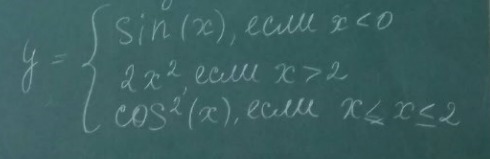 y = { sin(x), если x < 0
2x², если x > 2
cos²(x), если x ≤ x ≤ 2